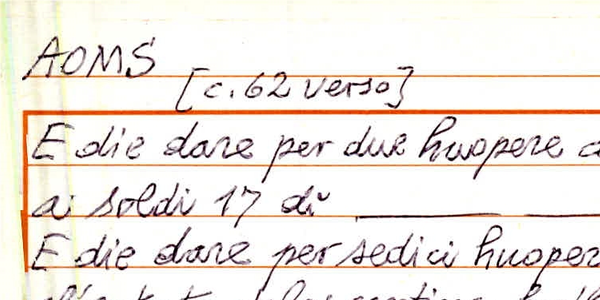 AOMS
[c. 62 verso]
E die dare per due huopere
a soldi 17 di
E die dare per sedici huoper